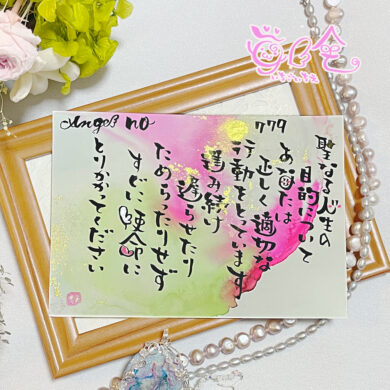 Angel no 779
聖なる人生の
目的について
あなたは
正しく適切な
行動をとっています
進み続け
遅らせたり
ためらったりせず
すぐに
とりかかってください